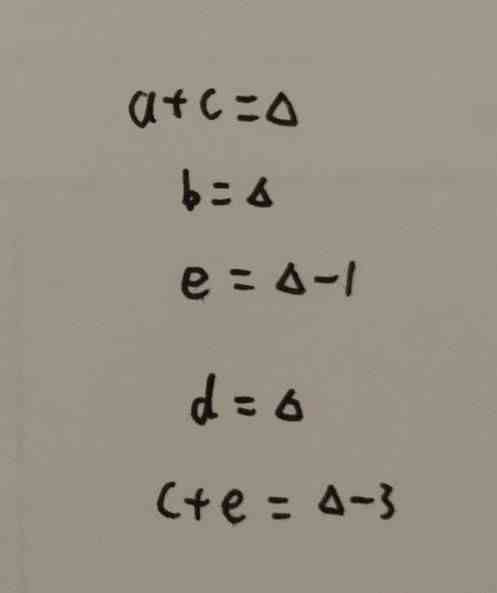 a+c=Δ
b=Δ
e=Δ-1
d=Δ
c+e=Δ-3